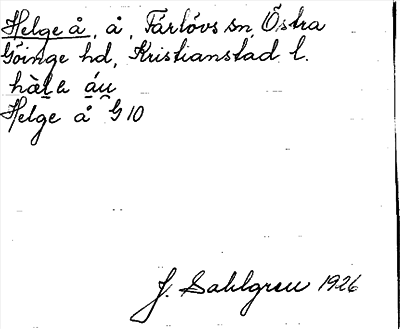 Helge å, å, Färlövs sn, Östra
Göinge hd, Kristianstad l.
hàl̲a á̲u̲
Helge å G 10
J. Sahlgren 1926